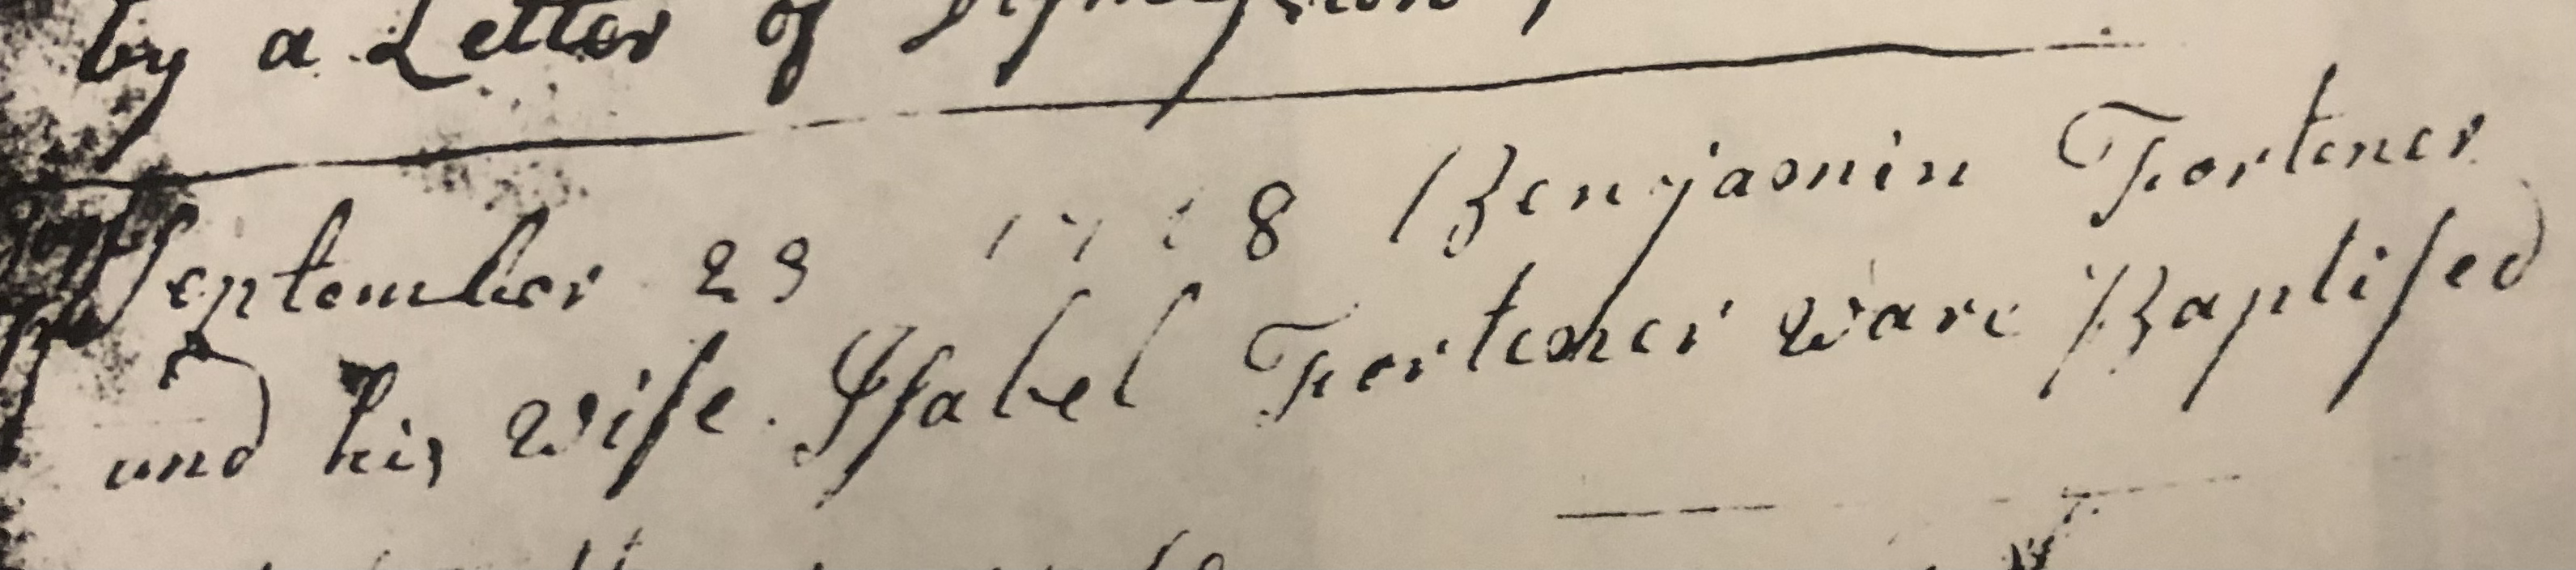 by a Letter of Dismission
September 29 17 8 Benjamin Fortener
and his wife Isabel Fortener ware Baptised